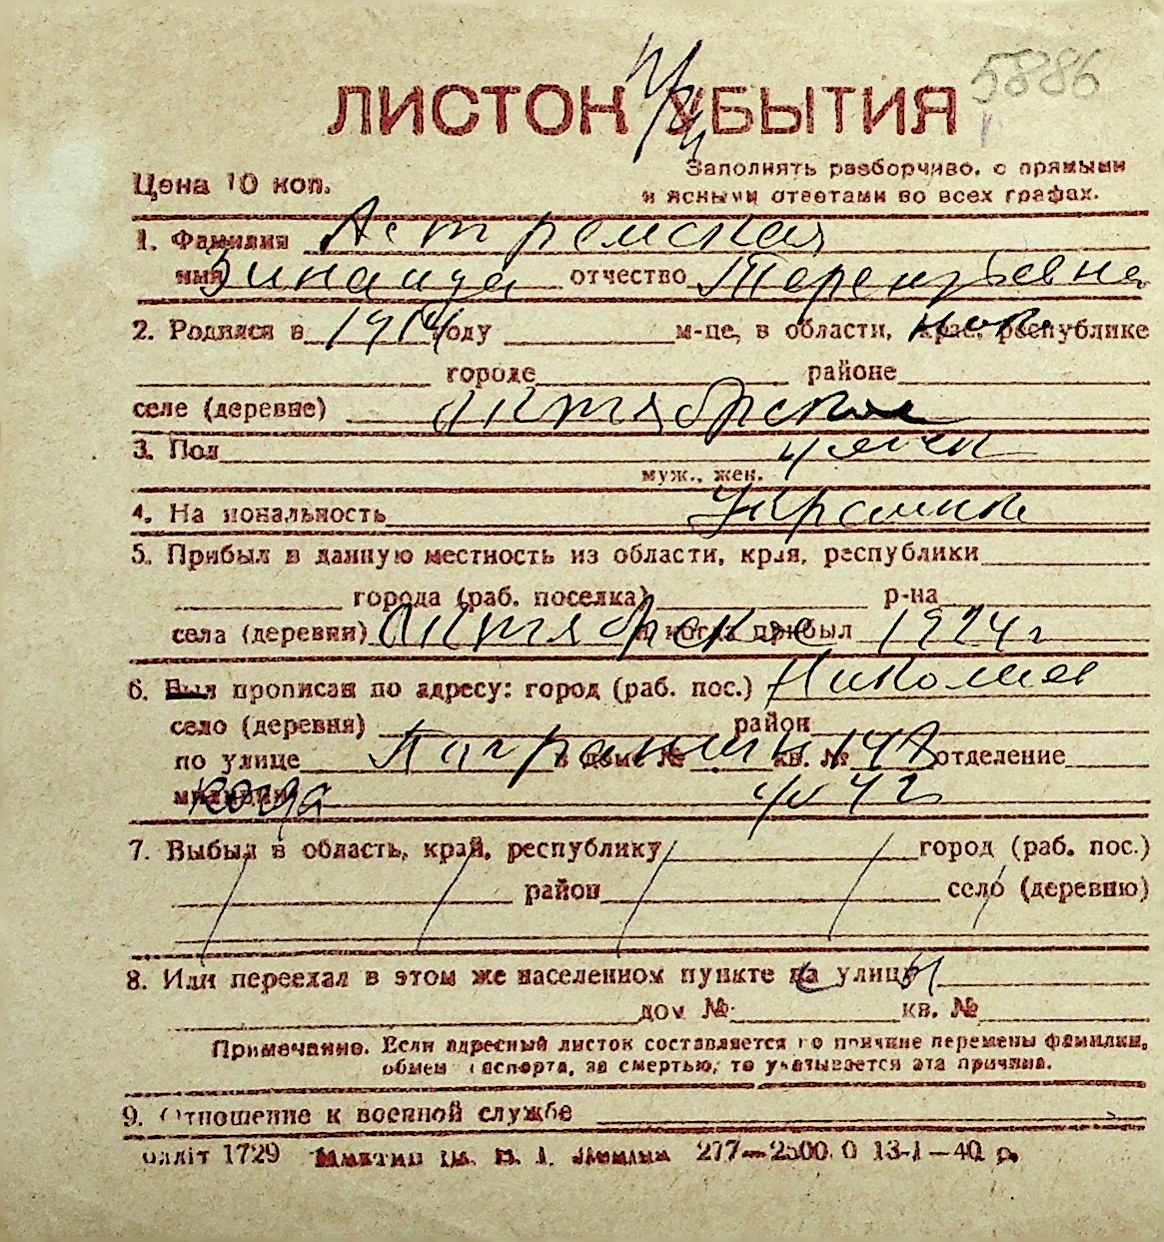 5886
ЛИСТОК УБЫТИЯ
Цена 10 коп.
Заполнять разборчиво, с прямыми
и ясными ответами во всех графах.
1. Фамилия Астремская
имя Зинаида отчество Терентьевна
2. Родился в 1914 году м-це, в области, крае, республике
городе районе
селе (деревне) Октябрьское
3. Пол
муж., жен.
4. На иональность Украинк
5. Прибыл в данную местность из области, края, республики
города (раб. поселка) р-на
села (деревни) Октябрьское и когда прибыл 1924 г
6. Был прописан по адресу: город (раб. пос.) Николаев
село (деревня) район
по улице Погранич в доме № кв. № 147 отделение
милиции когда 42
7. Выбыл в область, край, республику город (раб. пос.)
район село (деревню)
8. Или переехал в этом же населенном пункте на улицу
дом № кв. №
Примечание. Если адресный листок составляется по причине перемены фамилии,
обмен паспорта, за смертью, то указывается эта причина.
9. Отношение к военной службе
бліт 1729 277—2500 0 13-1—40 р.